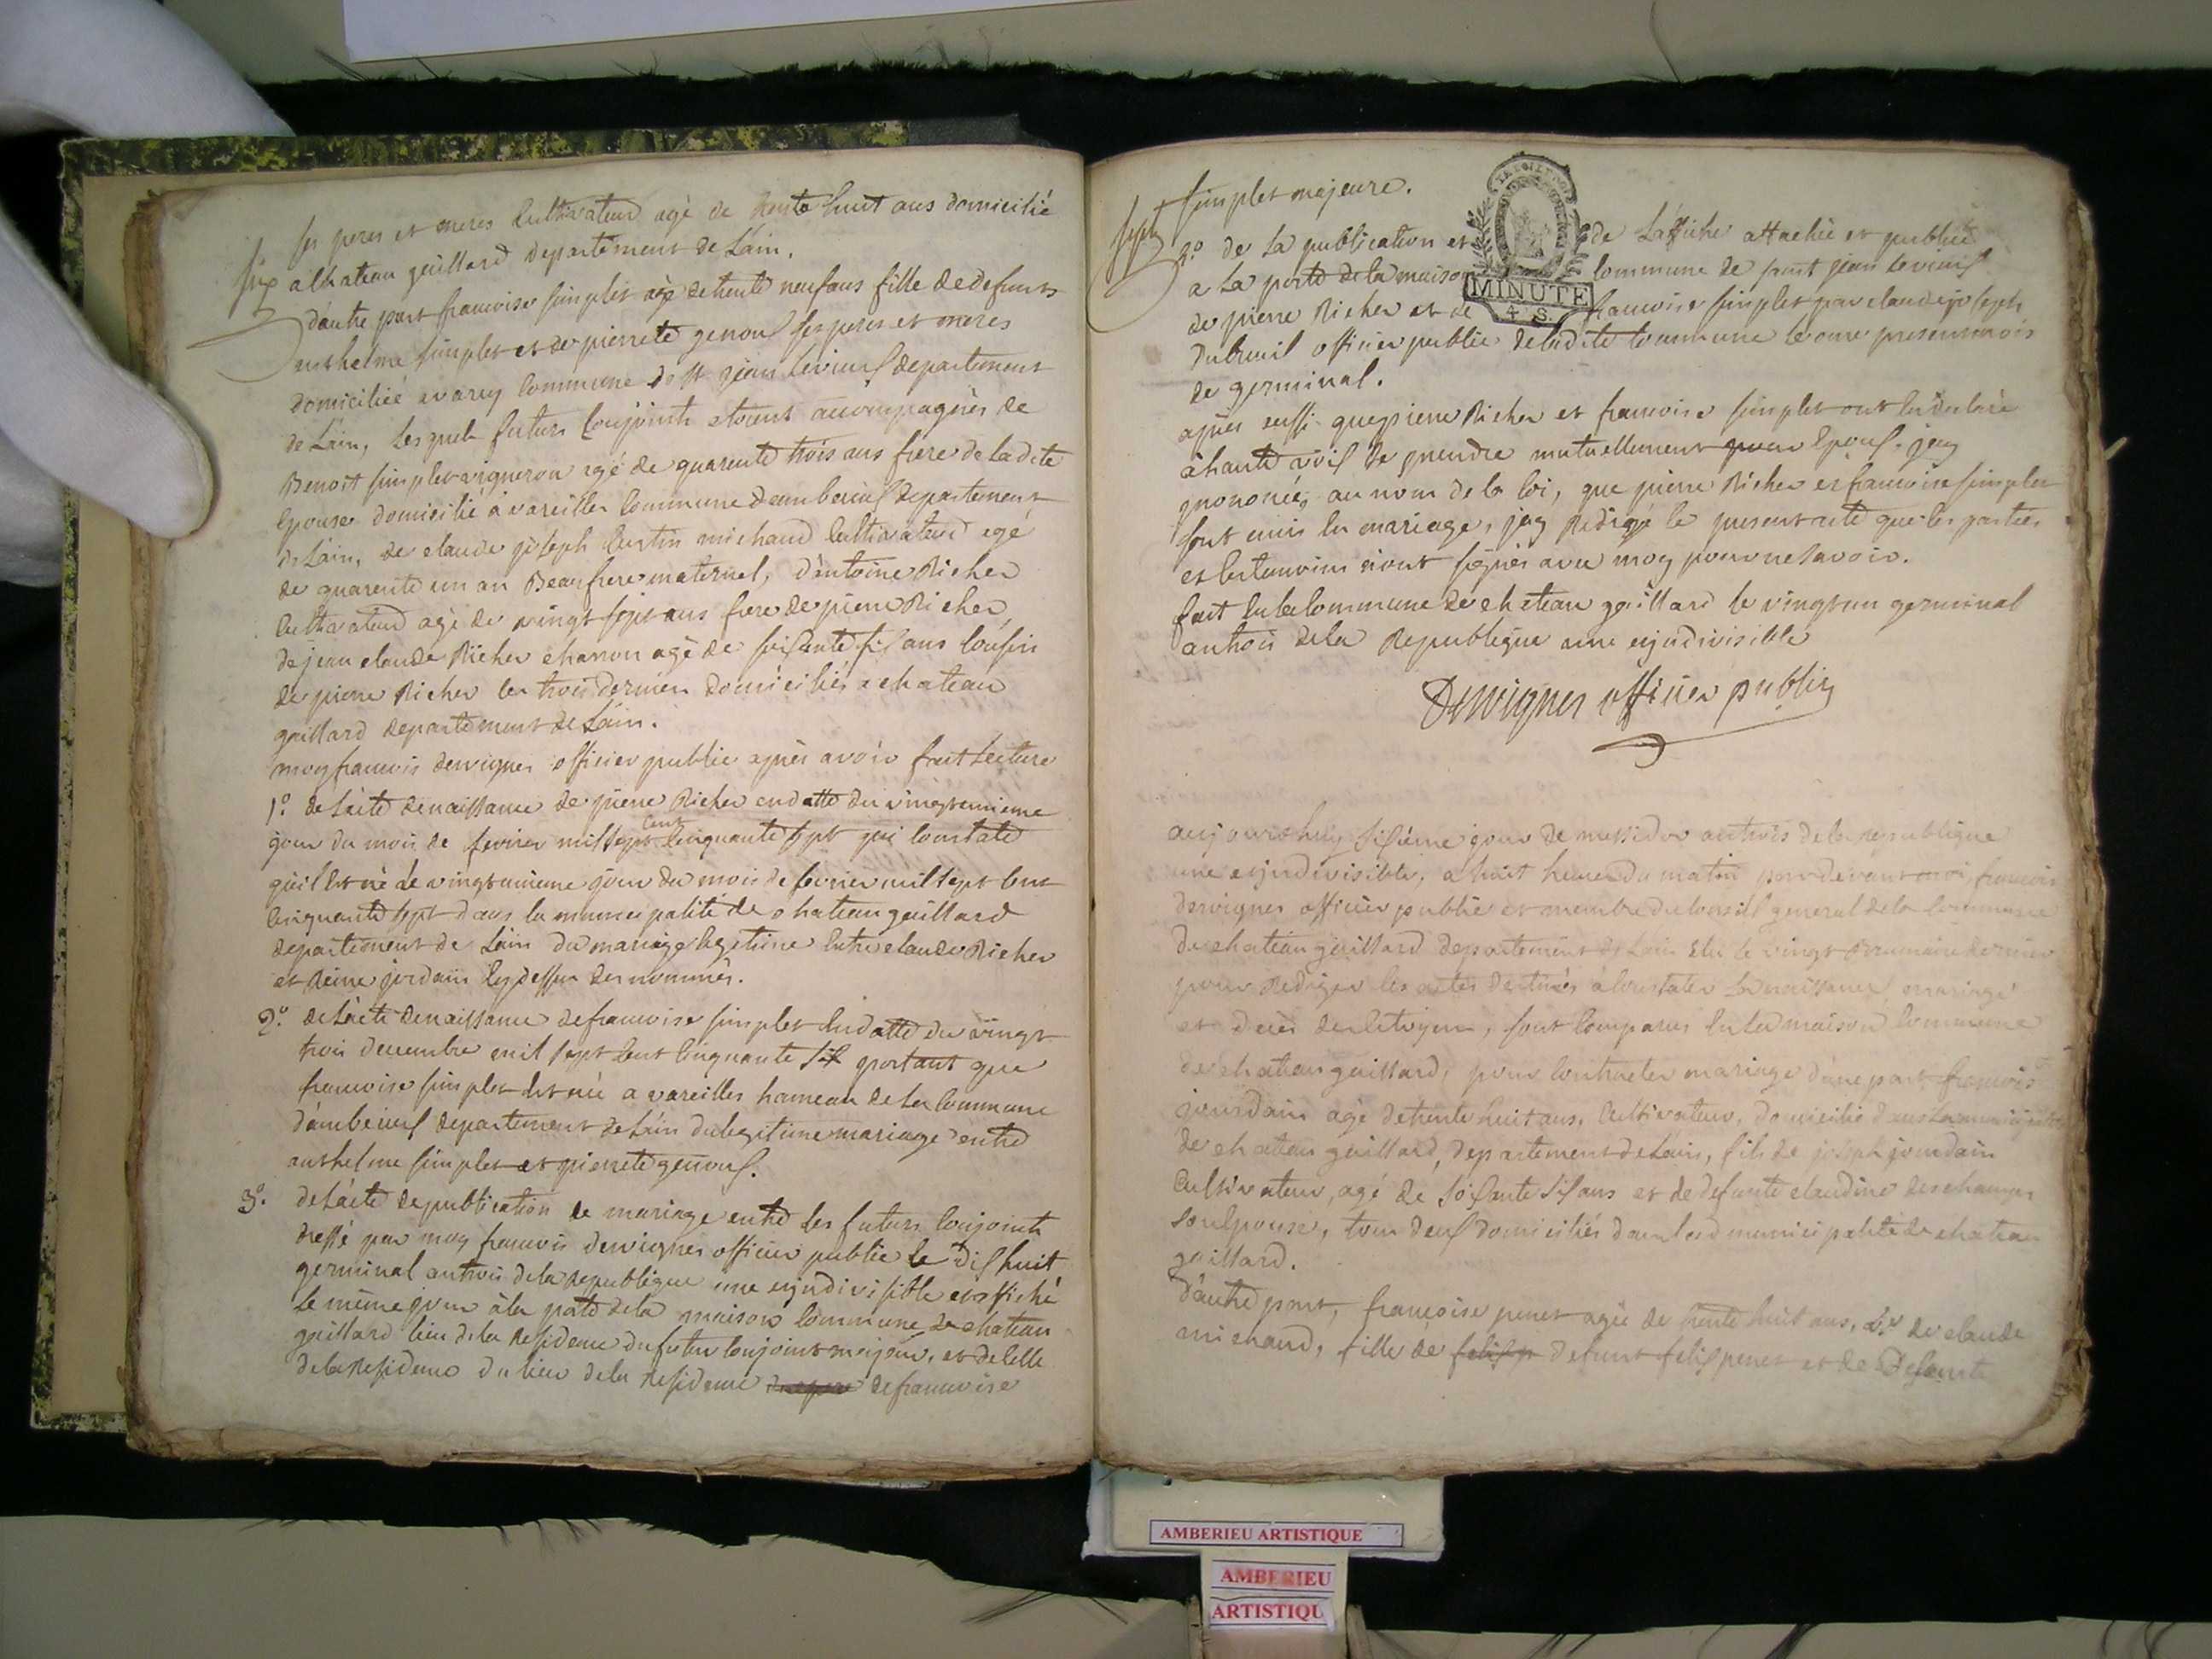 six
ses peres et meres Cultivateur agé de trente huit ans domicilié
a Chateau gaillard departement de Láin.
dáutre part francoise simplet agé de trente neuf ans fille de defunts
anthelme simplet et de pierrete genouf ses peres et meres
domiciliée en avrey commune de st jean Levieuf departement
de Láin, Lesquels futurs Conjoints etoient accompagnées de
Benoit simplet vigneron agé de quarente trois ans frere de la dite
Epouse domicilié à vareilles Commune dámberieuf departement
de Láin, de claude joseph Curtin michaud Cultivateur agé
de quarente un an Beaufrere maternel, dántoine Richer
Cultivateur agé de vingt sept ans frere de pierre Richer
de jean claude Richer charron agé de soisente sis ans Cousin
de pierre Richer les trois derniers domiciliés a chateau
gaillard departement de Láin.
moy francois dervignes officier public après avoir fait Lecture
1º. de Lácte de naissance de pierre Richer en datte du vingtunieme
jour du mois de fevrier mil sept cent Cinquante sept qui Constate
quil Est né Le vingtunieme jour du mois de fevrier mil sept Cent
Cinquante sept dans la municipalité de chateau gaillard
departement de Láin du mariage legitime Entre claude Richer
et Reine jordain Cy dessu des nommés.
2º. de Lácte de naissance de francoise simplet En datte du vingt
trois decembre mil sept Cent Cinquante Sis portant que
francoise simplet Est née a vareilles hameau de La Commune
dámberieuf departement de Láin du legitime mariage entre
anthelme simplet et pierrete genouf.
3º. de Lácte de publication de mariage entre les futurs Conjoints
dressé par moy francois dervignes officier public le Dishuit
germinal an trois de la Republique une eindivisible et affiché
Le même jour à la porte de la maison Commune de chateau
gaillard lieu de la Residence du futur Conjoint majeur, et de Celle
de la Residence du lieu de la Residence de francoise
sept
simplet majeure.
4º. de La publication et de Láffiche attachée et publiée
a La porte de la maison Commune de saint jean Levieuf
de pierre Richer et de francoise simplet par claude joseph
dutreuil officier public de ladite Commune le onze present mois
de germinal.
MINUTE
4. S.
après aussi que pierre Richer et francoise simplet ont Eu declaré
à haute voix se prendre mutuellement pour Epous. jay
prononcé, au nom de la loi, que pierre Richer et francoise simplet
sont unis En mariage, jay Redigé le present acte que les parties
et les temoins nont signés avec moy pour ne Savoir.
fait En la Commune de chateau gaillard le vingtun germinal
an trois de la Republique une eindivisible
Dervignes officier public
aujourdhuy Sisieme jour de messidor an trois de la republique
une eindivisible, a huit heures du matin pardevant moi, francois
dervignes officier public et membre du Conseil general de la Commune
de chateau gaillard departement de Lain Elu le vingt Brumaire dernier
pour Rediger les actes destinés à Constater La naissance, mariage
et deces des Citoyens, sont Comparus En La maison Commune
de chateau gaillard, pour Contracter mariage dúne part francois
jourdain agé de trente huit ans, Cultivateur, domicilié dans La municipalité
de chateau gaillard, departement de Lain, fils de joseph jourdain
Cultivateur, agé de soisante Sis ans et de defunte claudine deschamps
son Epouse, tous deus domiciliés dans lad municipalité de chateau
gaillard.
dáutre part, françoise penet agée de trente huit ans, de claude
michaud, fille de defunt felis penet et de Defunte
AMBERIEU ARTISTIQUE
AMBERIEU
ARTISTIQU